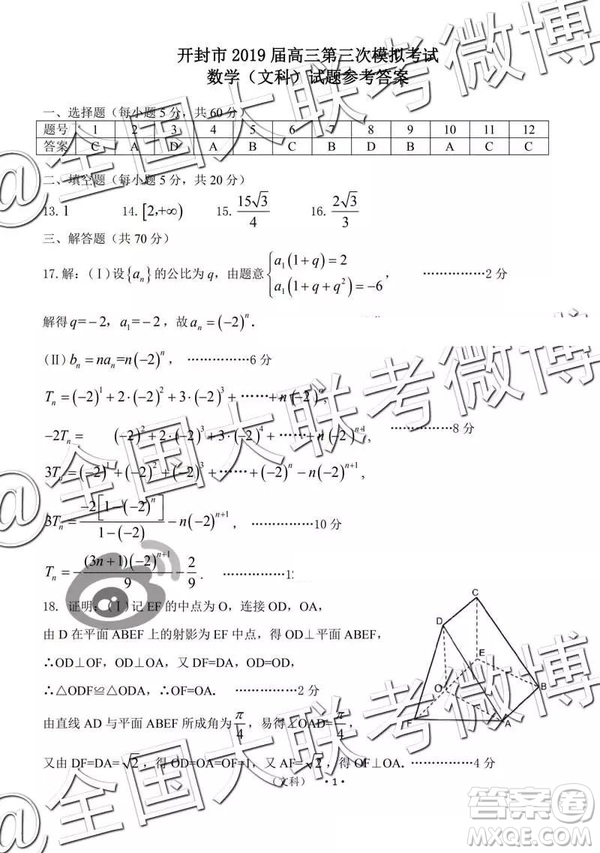 开封市 2019 届高三第三次模拟考试
数学（文科）试题参考答案
一、选择题（每小题 5 分，共 60 分）
题号 1 2 3 4 5 6 7 8 9 10 11 12
答案 C A D A C A D B D A C
二、填空题（每小题 5 分，共 20 分）
13. 1 14. [2,+∞) 15. 15√3/4 16. 2√3/3
三、解答题（共 70 分）
17.解：(Ⅰ)设{aₙ}的公比为 q，由题意{a₁(1+q)=2 a₁(1+q+q²)=-6， ……………2 分
解得 q=-2，a₁=-2，故 aₙ=(-2)ⁿ.
(Ⅱ) bₙ=naₙ=n(-2)ⁿ， ……………6 分
Tₙ=(-2)¹+2·(-2)²+3·(-2)³+……+n(-2)ⁿ，
-2Tₙ= (-2)²+2·(-2)³+3·(-2)⁴+……+n(-2)ⁿ⁺¹， ……………8 分
3Tₙ=(-2)¹+(-2)²+(-2)³+……+(-2)ⁿ-n(-2)ⁿ⁺¹，
3Tₙ=-2[1-(-2)ⁿ]/1-(-2)-n(-2)ⁿ⁺¹， ……………10 分
Tₙ=-(3n+1)(-2)ⁿ⁺¹/9-2/9. ……………1
18. 证明：(Ⅰ)记 EF 的中点为 O，连接 OD，OA，
由 D 在平面 ABEF 上的射影为 EF 中点，得 OD⊥平面 ABEF
∴OD⊥OF，OD⊥OA，又 DF=DA，OD=OD，
∴△ODF≌△ODA，∴OF=OA， ……………2 分
由直线 AD 与平面 ABEF 所成角为π/4，易得∠OAD=π/4，
又由 DF=DA=√2，得 OD=OA=OF=1，又 AF=√2，……………4 分
C
D
E
B
O
F
A
（文科） ·1·
@全国大联考微博
@全国大联考微博
@全国大联考微博
答案圈
MXQE.COM